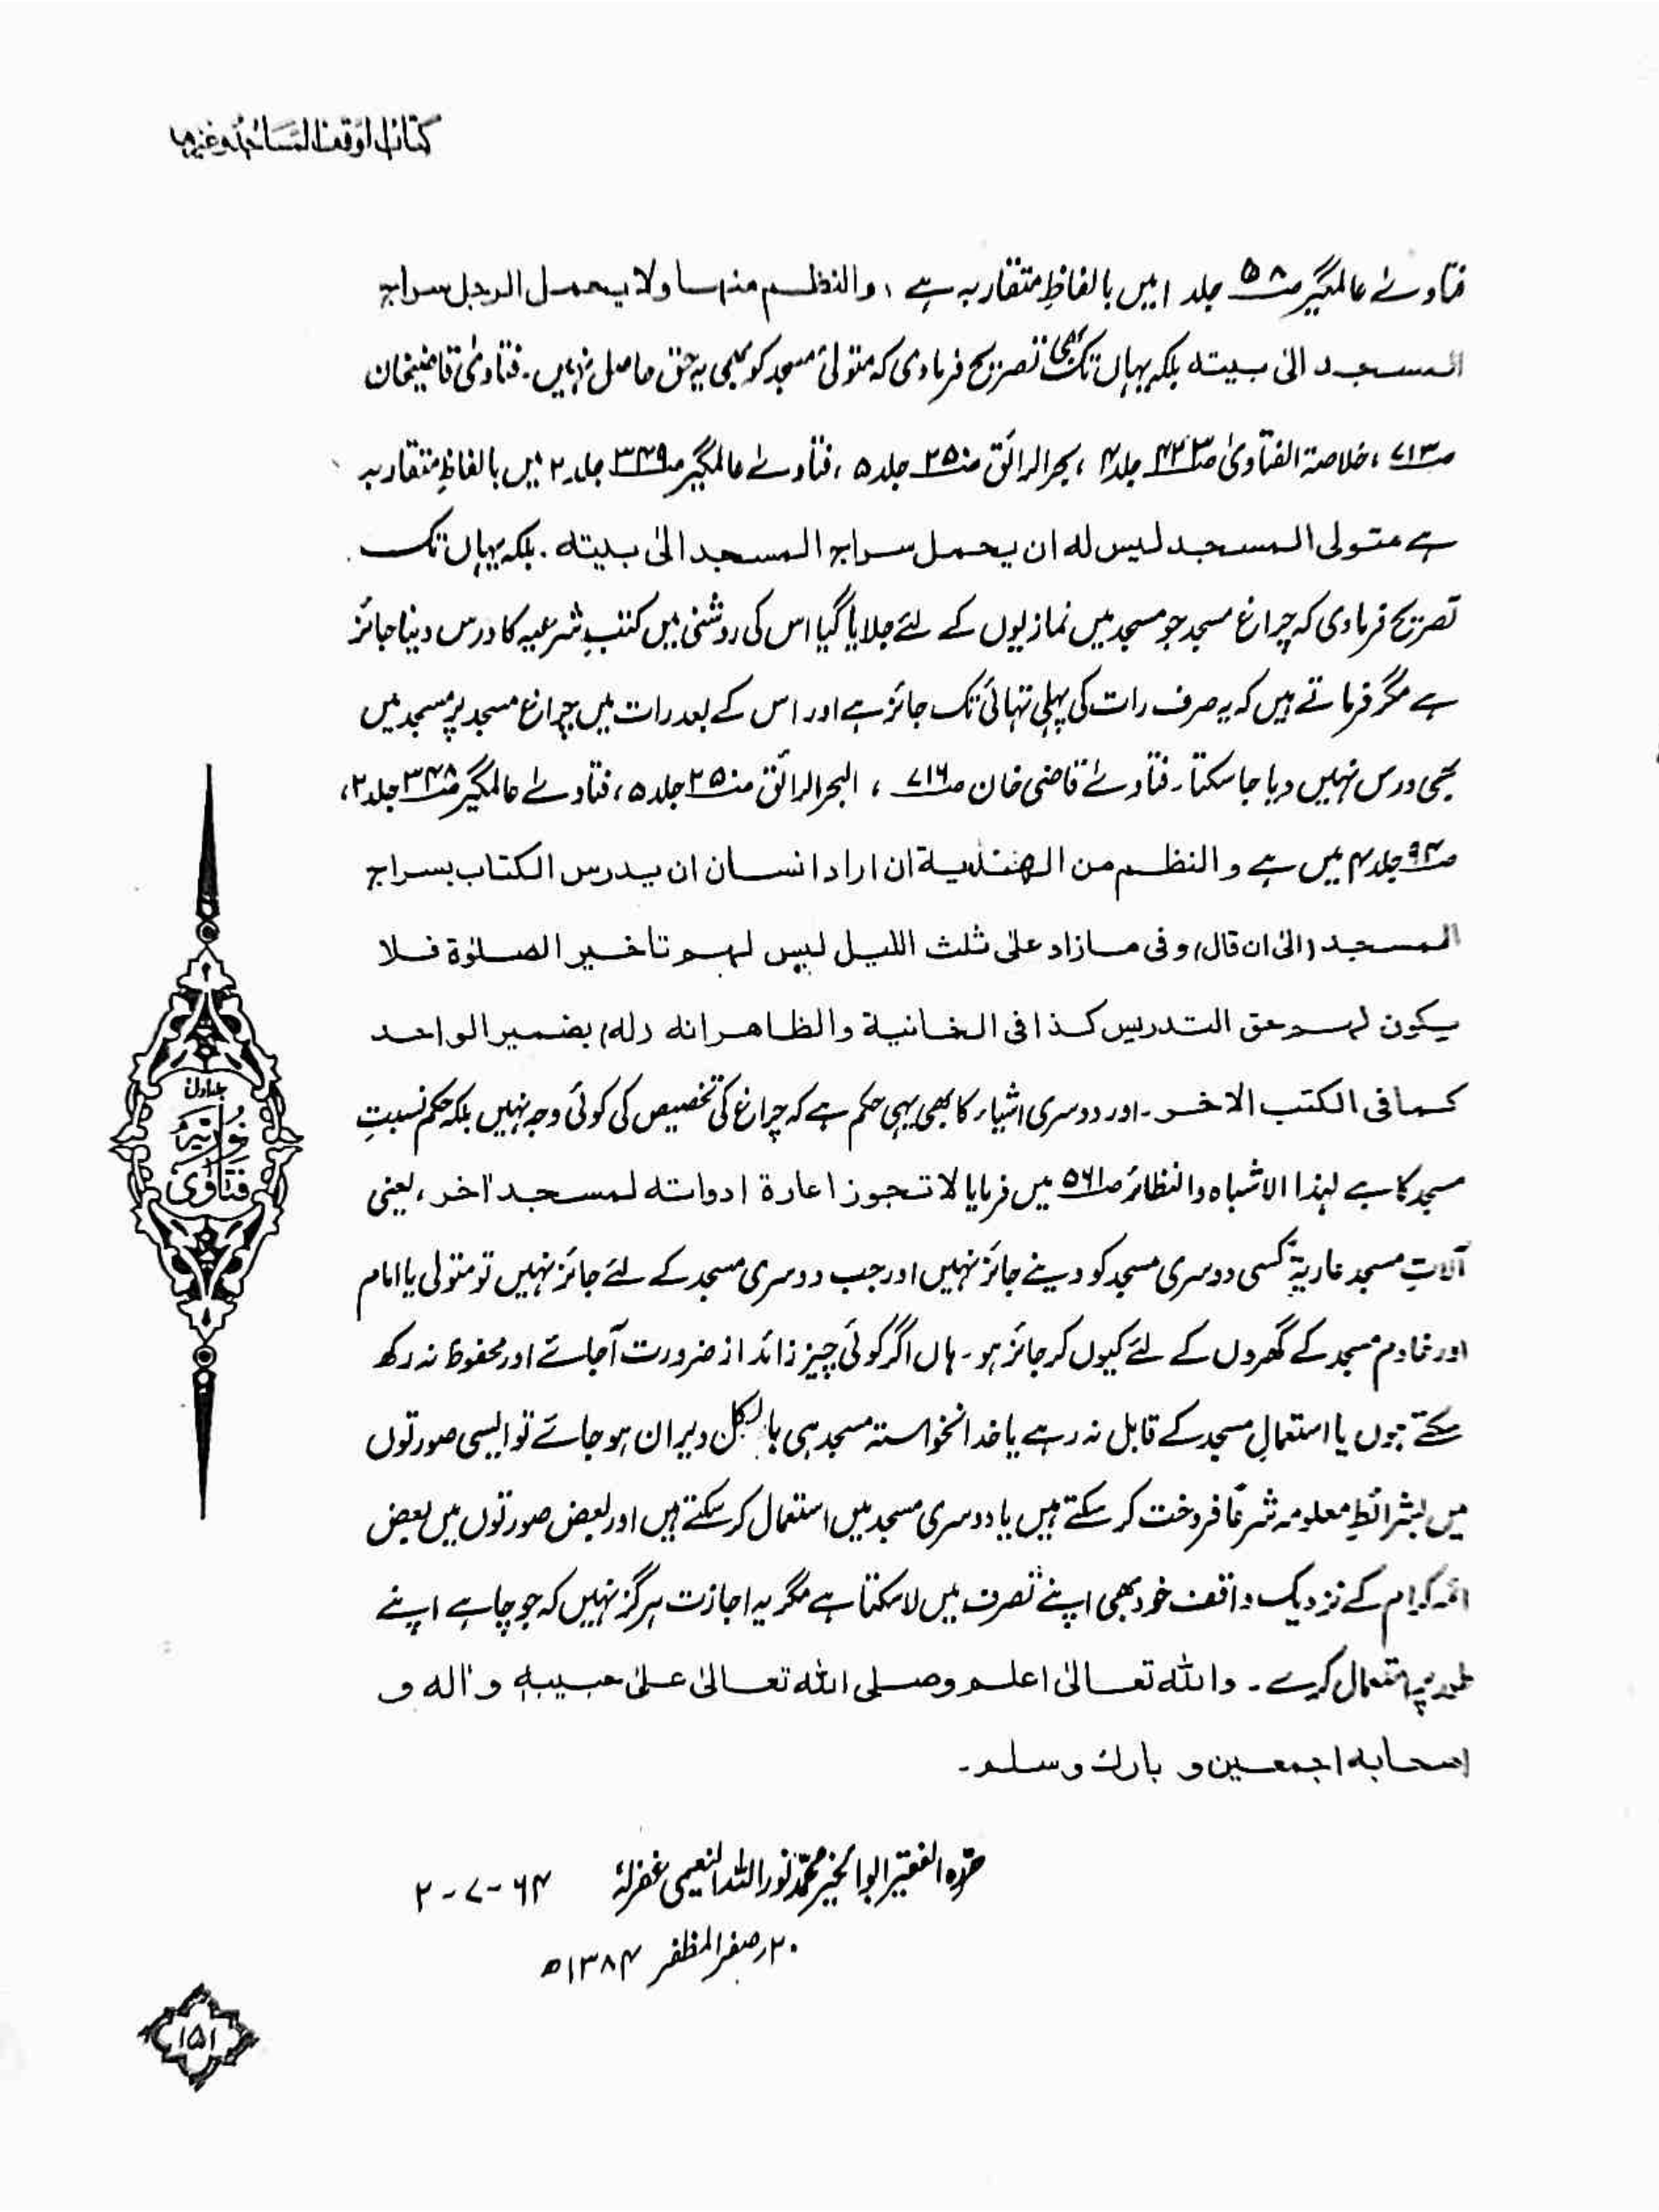 کتاب اوقف المساجد وغیرہا
فتاوےٰ عالمگیر صـ۵۸ جلد ۱ میں بالفاظِ متقاربہ ہے ، والنظم منہا ولا یحمل الرجل سراج
المسجد الیٰ بیتہ بلکہ یہاں تک بھی تصریح فرمادی کہ متولیٔ مسجد کو بھی یہ حق حاصل نہیں ۔ فتاویٰ قاضیخان
صـ۷۱۳ ، خلاصۃ الفتاویٰ صـ۴۲۳ جلد۴ ، بحرالرائق صـ۲۵۰ جلد ۵ ، فتاوےٰ عالمگیر صـ۳۴۹ جلد ۲ میں بالفاظِ متقاربہ
ہے متولی المسجد لیس لہ ان یحمل سراج المسجد الیٰ بیتہ ۔ بلکہ یہاں تک
تصریح فرمادی کہ چراغ مسجد جو مسجد میں نمازیوں کے لئے جلایا گیا اس کی روشنی میں کتبِ شرعیہ کا درس دینا جائز
ہے مگر فرماتے ہیں کہ یہ صرف رات کی پہلی تہائی تک جائز ہے اور اس کے بعد رات میں چراغ مسجد پر مسجد میں
بھی درس نہیں دیا جا سکتا ۔ فتاوےٰ قاضی خان صـ۷۱۶ ، البحر الرائق صـ۲۵۰ جلد ۵ ، فتاوےٰ عالمگیر صـ۳۴۸ جلد ۲ ،
صـ۹۴ جلد ۴ میں ہے والنظم من الھندیۃ ان اراد انسان ان یدرس الکتاب بسراج
المسجد (الیٰ ان قال) وفی مازاد علیٰ ثلث اللیل لیس لہم تاخیر الصلوٰۃ فلا
یکون لہم حق التدریس کذا فی الخانیۃ والظاھر انہ (لہ) بضمیر الواحد
کما فی الکتب الاخر ۔ اور دوسری اشیاء کا بھی یہی حکم ہے کہ چراغ کی تخصیص کی کوئی وجہ نہیں بلکہ حکم نسبتِ
مسجد کا ہے لہٰذا الاشباہ والنظائر صـ۵۶۱ میں فرمایا لا تجوز اعارۃ ادواتہ لمسجد آخر ، یعنی
آلاتِ مسجد عاریۃً کسی دوسری مسجد کو دینے جائز نہیں اور جب دوسری مسجد کے لئے جائز نہیں تو متولی یا امام
اور خادم مسجد کے گھروں کے لئے کیوں کر جائز ہو ۔ ہاں اگر کوئی چیز زائد از ضرورت آجائے اور محفوظ نہ رکھ
سکتے ہوں یا استعمالِ مسجد کے قابل نہ رہے یا خدانخواستہ مسجد ہی بالکل ویران ہو جائے تو ایسی صورتوں
میں بشرائطِ معلومہ شرعًا فروخت کر سکتے ہیں یا دوسری مسجد میں استعمال کر سکتے ہیں اور بعض صورتوں میں بعض
ائمہ کرام کے نزدیک واقف خود بھی اپنے تصرف میں لا سکتا ہے مگر یہ اجازت ہرگز نہیں کہ جو چاہے اپنے
طور پر استعمال کرے ۔ واللہ تعالیٰ اعلم وصلی اللہ تعالیٰ علیٰ حبیبہٖ واٰلہ و
اصحابہ اجمعین و بارك وسلم ۔
حررہ الفقیر ابوالخیر محمد نور اللہ النعیمی غفرلہٗ ۶۴-۷-۲
۲۰؍صفر المظفر ۱۳۸۴ھ
جلد اول
فتاویٰ نوریہ
۱۵۱